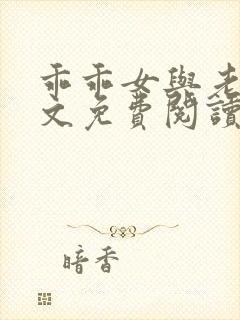 乖乖女與老
文免費閱讀
暗香